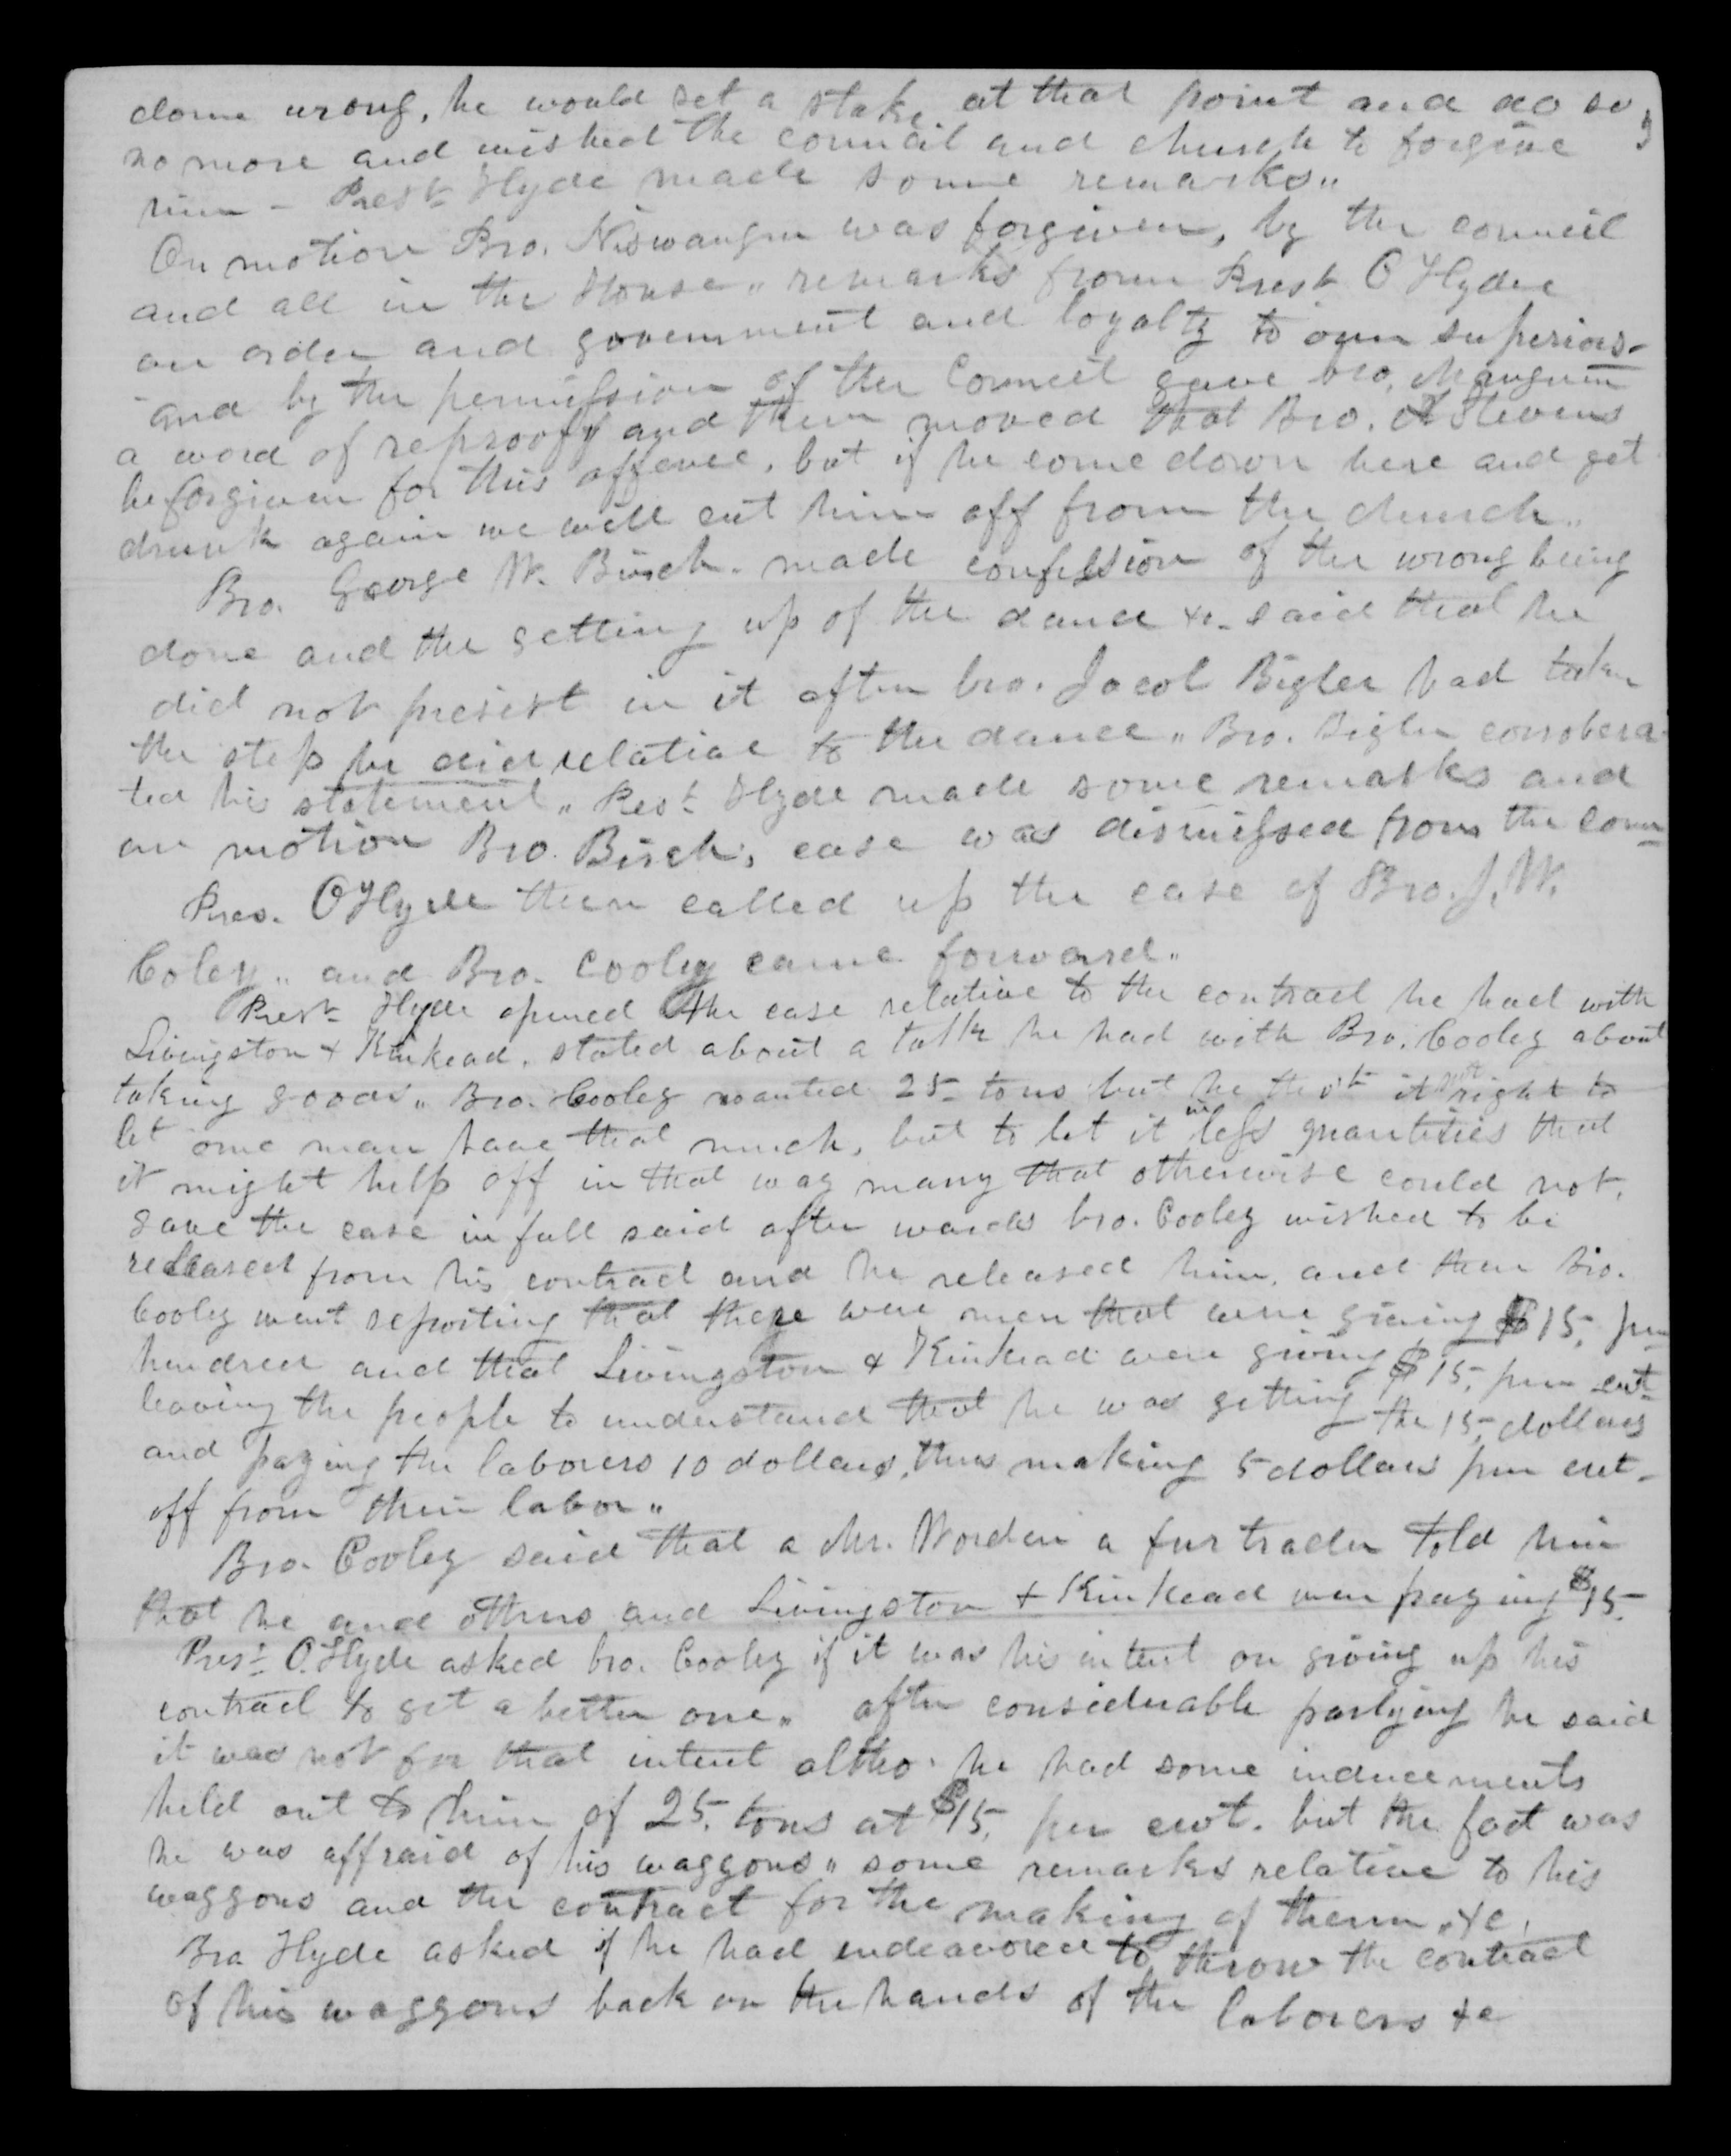 done wrong, he would set a stake at that point and do so
no more and wished the council and church to forgive
him – Prest Hyde made some remarks„
On motion Bro. Niswanger was forgiven, by the council
and all in the House„ remarks from Prest. O Hyde
on order and government and loyalty to our superiors–
and by the permission of the Council gave bro. Mangum
a word of reproof and then moved that Bro. A Stevens
be forgiven for this offence, but if he come down here and get
drunk again we will cut him off from the church„
Bro. George W. Birch. made confession of the wrong being
done and the getting up of the dance &c. said that he
did not presist in it after bro. Jacob Bigler had taken
the step he did relative to the dance„ Bro. Bigler corrobera
ted his statement„ Prest Hyde made some remarks and
on motion Bro. Birch, case was dismissed from the coun–
Pres. O Hyde then called up the case of Bro. J. W.
Coley„ and Bro. Cooley came forward„
Prest– Hyde opened the case relative to the contract he had with
Livingston & Kinkead. stated about a talk he had with Bro. Cooley about
taking goods„ Bro. Cooley wanted 25– tons but he tho't it not right to
let one man have that much, but to let it in less quantities that
it might help off in that way many that otherwise could not,
gave the case in full said after wards bro. Cooley wished to be
released from his contract and he released him, and then Bro.
Cooley went reporting that there were men that were giving $15, per
hundred and that Livingston & Kinkead were giving $15, per cwt–
leaving the people to understand that he was getting the 15, dollars
and paying the laborers 10 dollars, thus making 5 dollars per cwt–
off from their labor„
Bro. Cooley said that a Mr. Worden a fur trader told him
that he and others and Livingston & Kinkead were paying $15–
Prest– O. Hyde asked bro. Cooley if it was his intent on giving up his
contract to get a better one„ after considerable parlying he said
it was not for that intent altho' he had some inducements
held out to him of 25, tons at $15, per cwt. but the fact was
he was affraid of his waggons„ some remarks relative to his
waggons and the contract for the making of them, &c,
Bro Hyde asked if he had endeavored to throw the contract
of his waggons back on the hands of the laborers &c